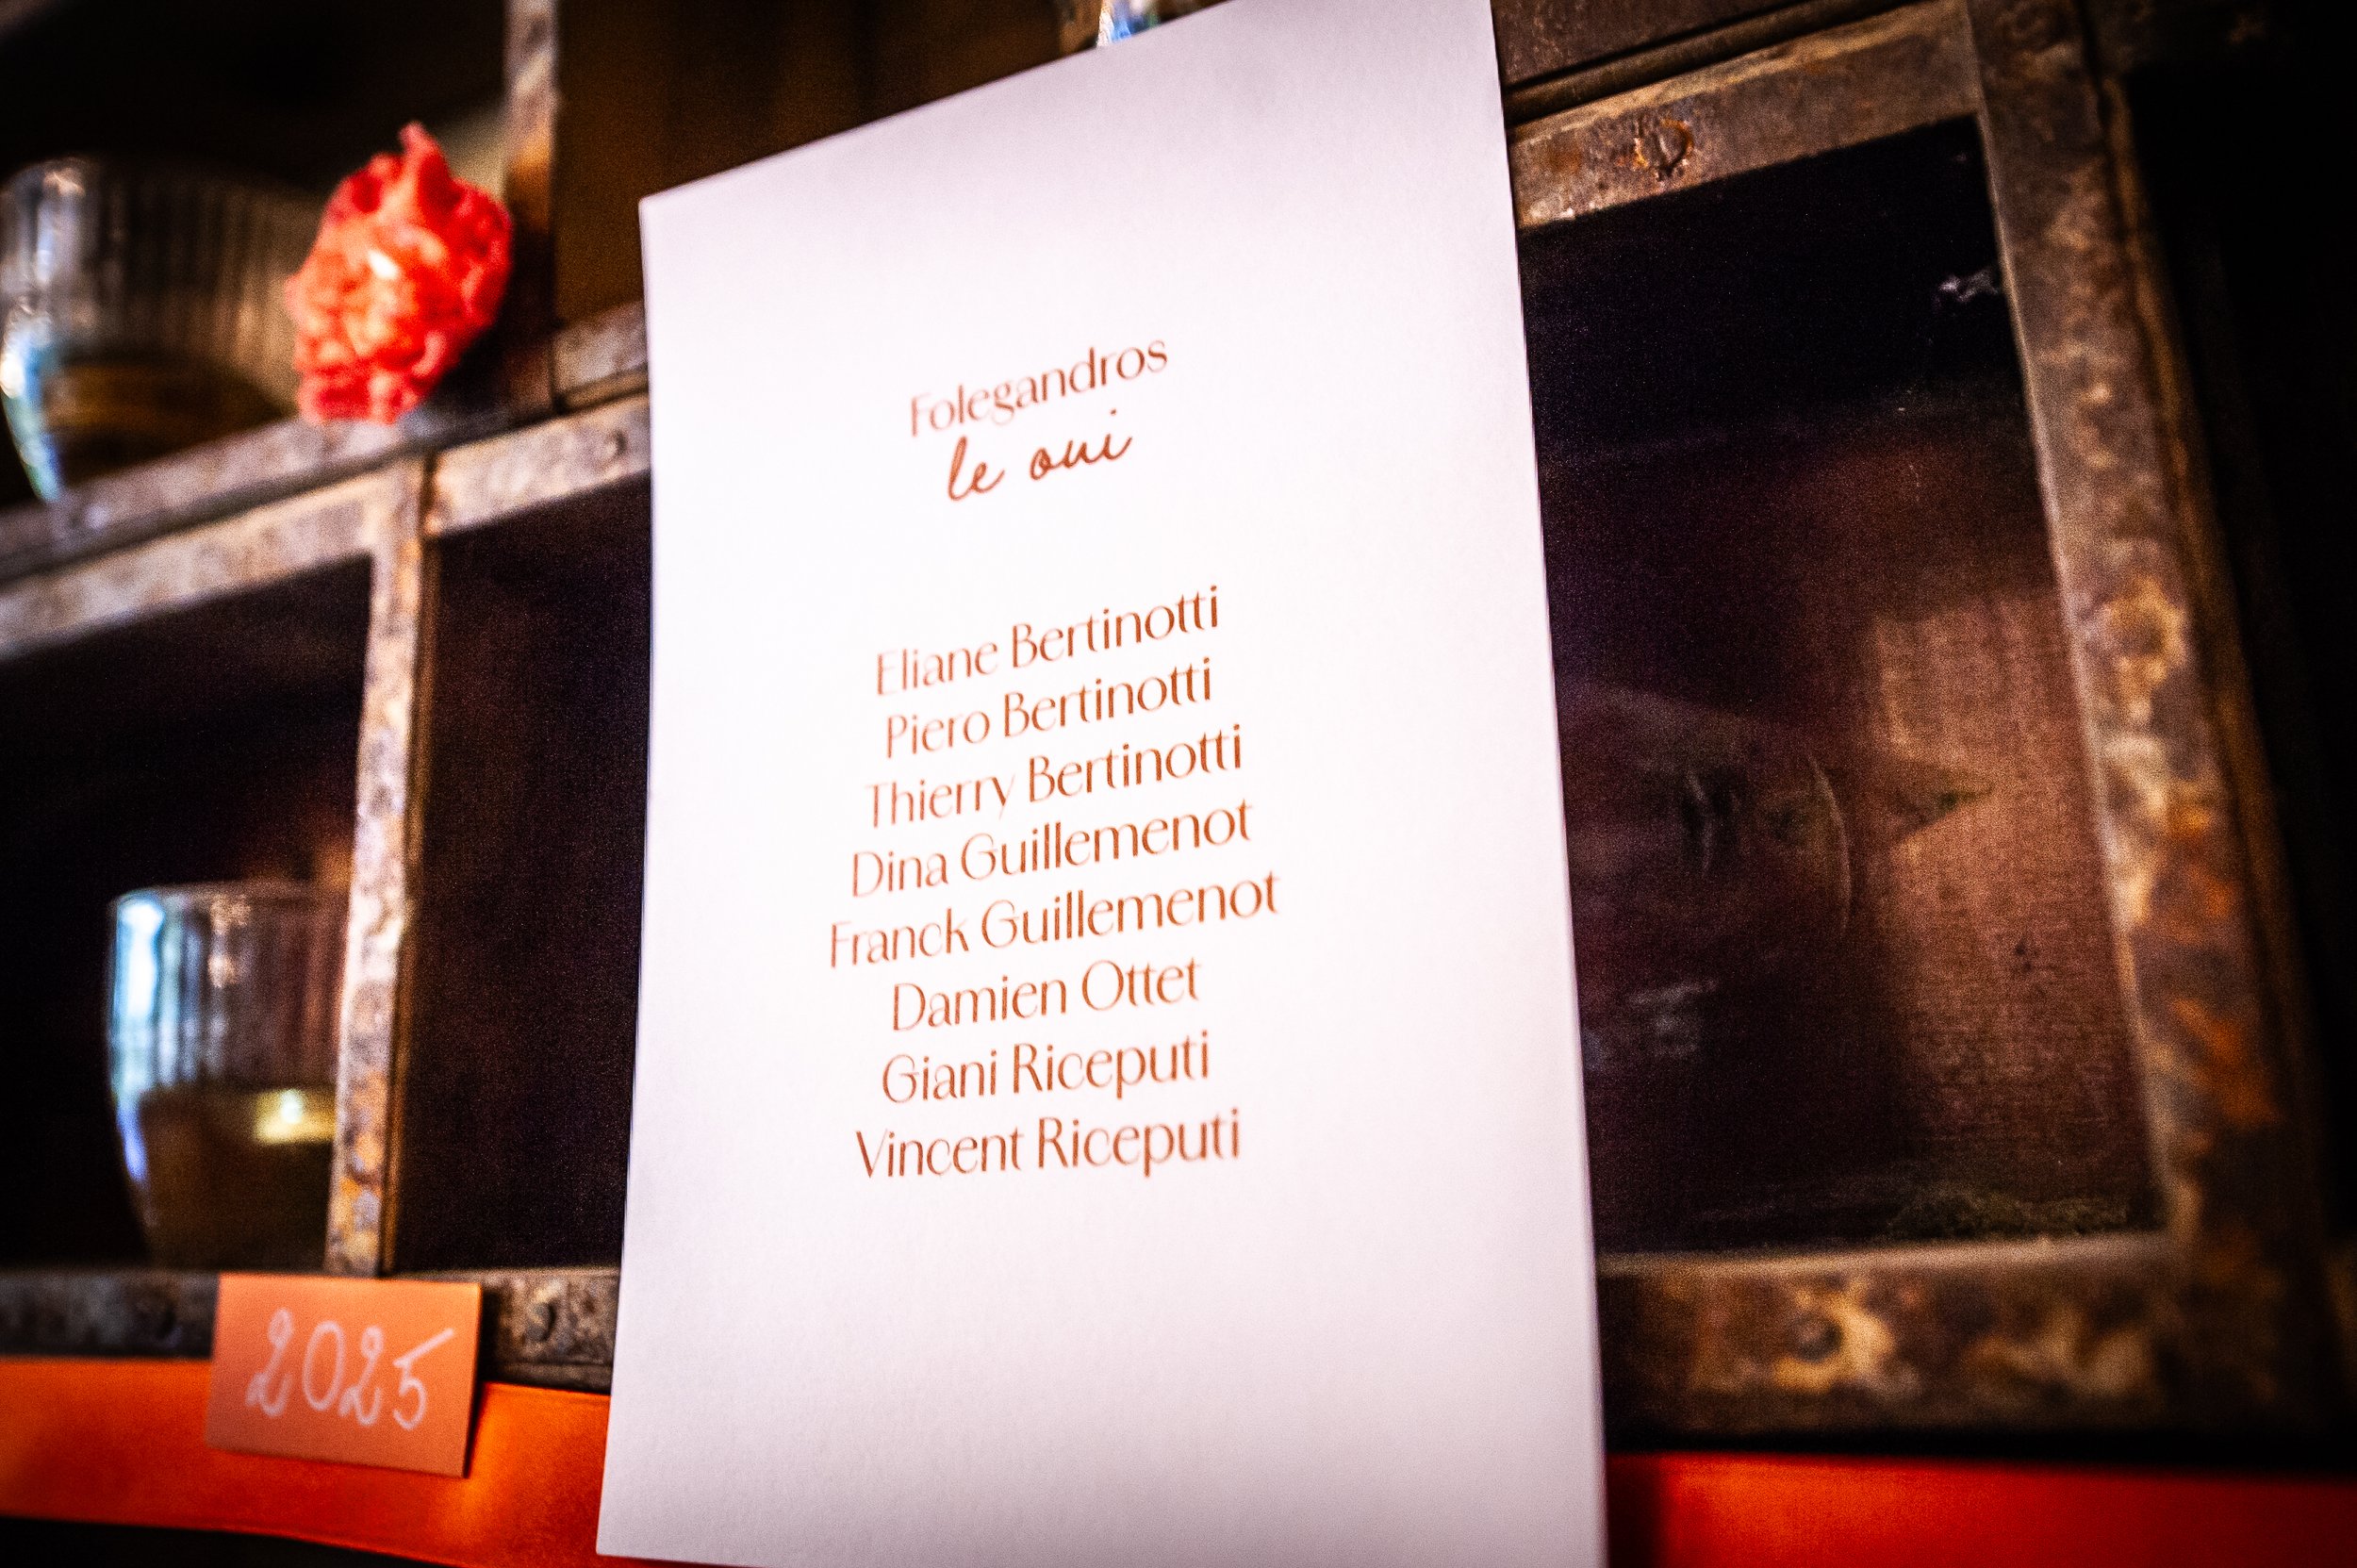 Folegandros
le oui
Eliane Bertinotti
Piero Bertinotti
Thierry Bertinotti
Dina Guillemenot
Franck Guillemenot
Damien Ottet
Giani Riceputi
Vincent Riceputi
2025